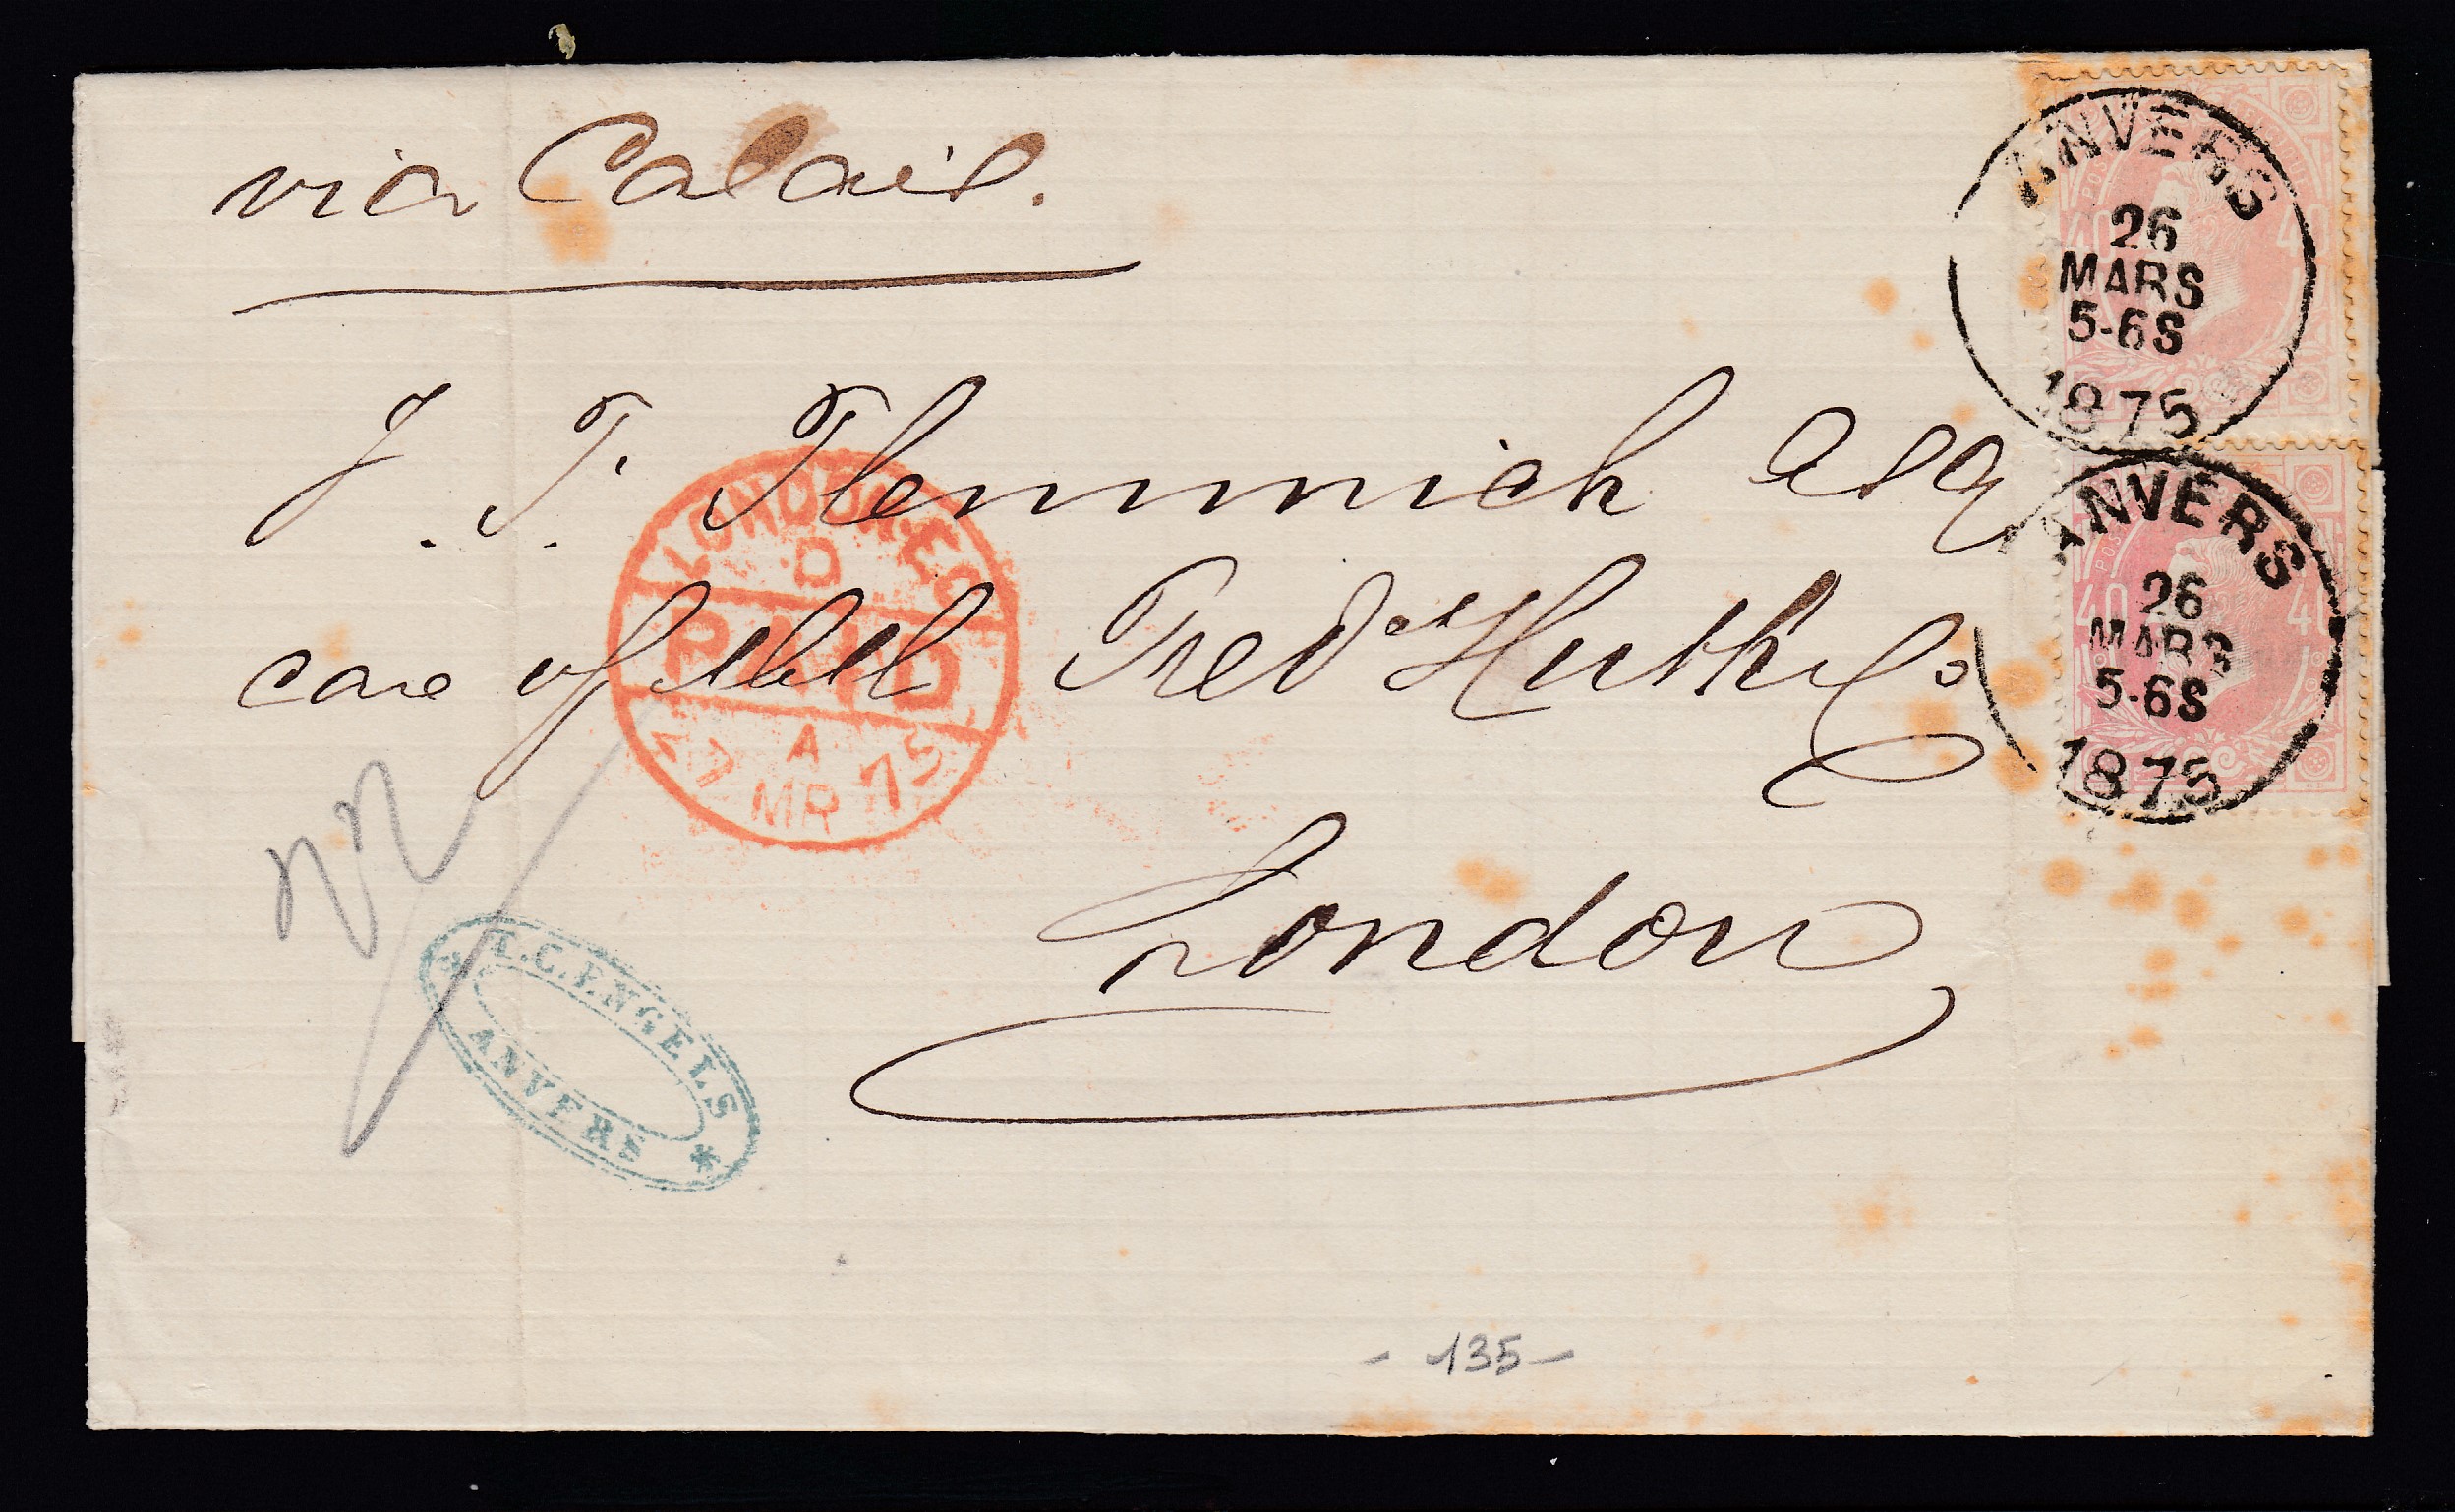 via Calais.
ANVERS
26
MARS
5-6S
1875
40
J. F. Flemmich Esq
ANVERS
26
MARS
5-6S
1875
40 40
LONDON·EC
D
PAID
A
27 MR 75
care of Fredk Huth & Co
London
T.C. ENGELS
ANVERS *
- 135 -